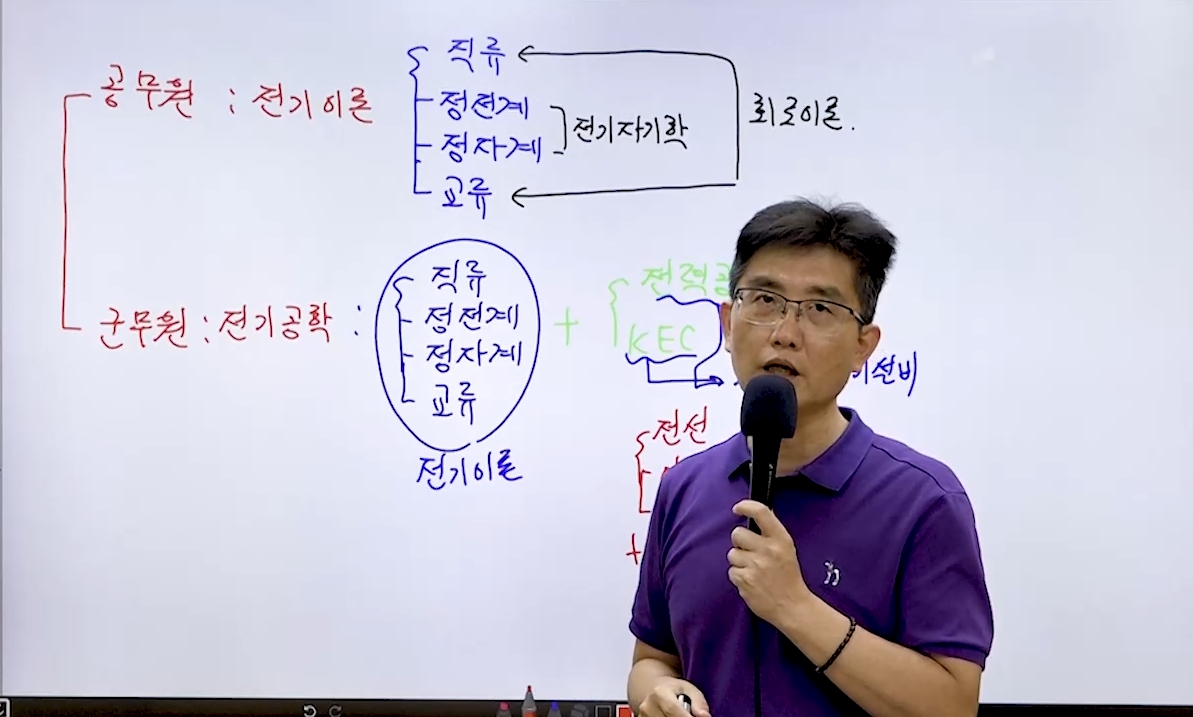 직류
공무원 : 전기이론
정전계
전기자기학
회로이론.
정자계
교류
직류
군무원 : 전기공학 :
정전계
정자계
교류
전기이론
+
전력
KEC
설비
전선
+